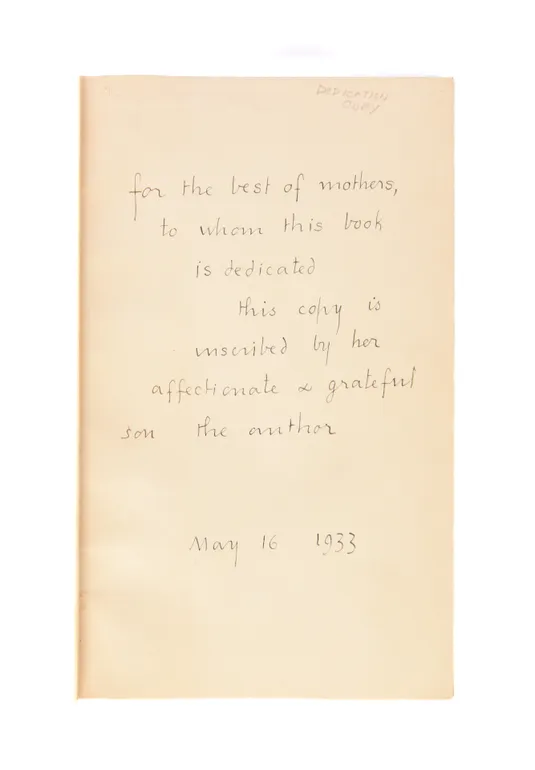 DEDICATION
COPY
for the best of mothers,
to whom this book
is dedicated
this copy is
inscribed by her
affectionate & grateful
son the author
May 16 1933